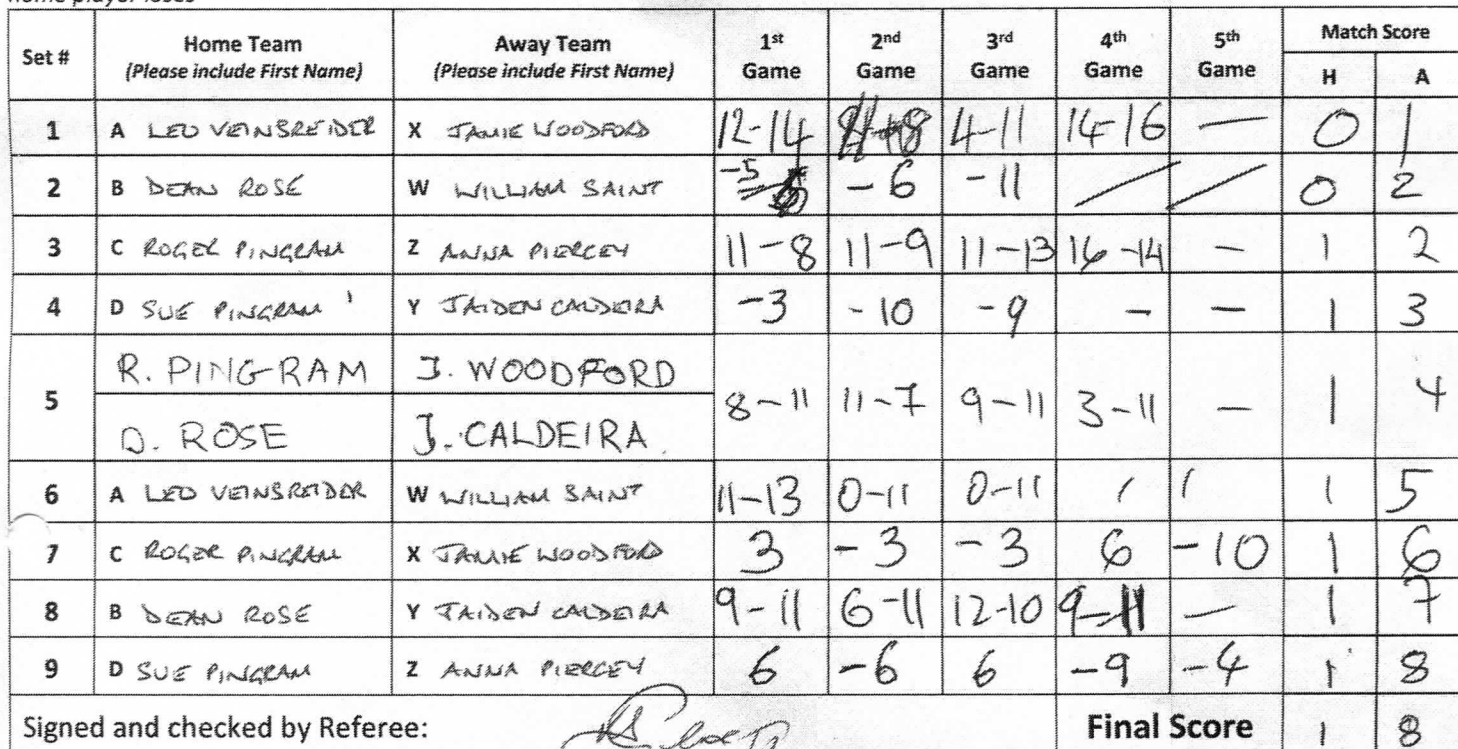 home player loses
Set # Home Team (Please include First Name) Away Team (Please include First Name) 1st Game 2nd Game 3rd Game 4th Game 5th Game Match Score H A
1 A LEO VEINSREIDER X JAMIE WOODFORD 12-14 4-11 14-16 — 0 1
2 B DEAN ROSE W WILLIAM SAINT -5 -6 -11 / / 0 2
3 C ROGER PINGRAM Z ANNA PIERCEY 11-8 11-9 11-13 16-14 - 1 2
4 D SUE PINGRAM Y JAIDEN CALDEIRA -3 -10 -9 - - 1 3
R. PINGRAM J. WOODFORD
5 8-11 11-7 9-11 3-11 - 1 4
D. ROSE J. CALDEIRA
6 A LEO VEINSREIDER W WILLIAM SAINT 11-13 0-11 0-11 / / 1 5
7 C ROGER PINGRAM X JAMIE WOODFORD 3 -3 -3 6 -10 1 6
8 B DEAN ROSE Y JAIDEN CALDEIRA 9-11 6-11 12-10 9-11 - 1 7
9 D SUE PINGRAM Z ANNA PIERCEY 6 -6 6 -9 -4 1 8
Signed and checked by Referee: Final Score 1 8